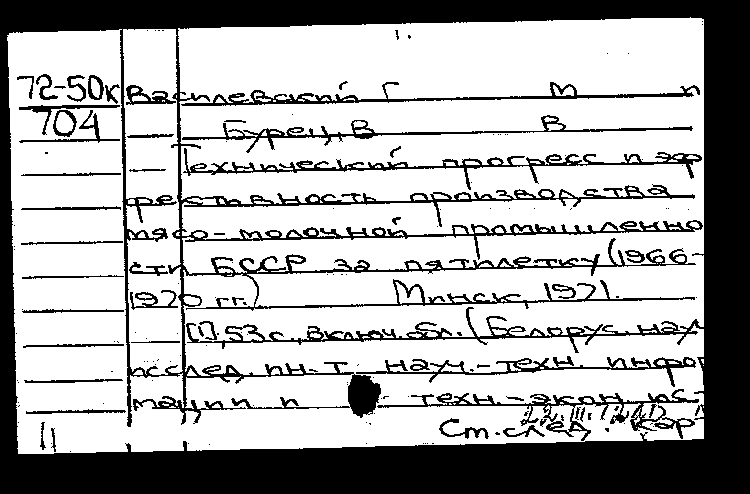 1.
72-50к Василевский Г М и
704 Бурец, В В
Технический прогресс и эф
фективность производства
мясо-молочной промышленно
сти БССР за пятилетку (1966-
1970 гг.) Минск, 1971.
[1], 53 с., включ. обл. (Белорус. науч
исслед. ин-т науч.-техн. инфор
мации и техн.-экон. исс
11 См. след. кар